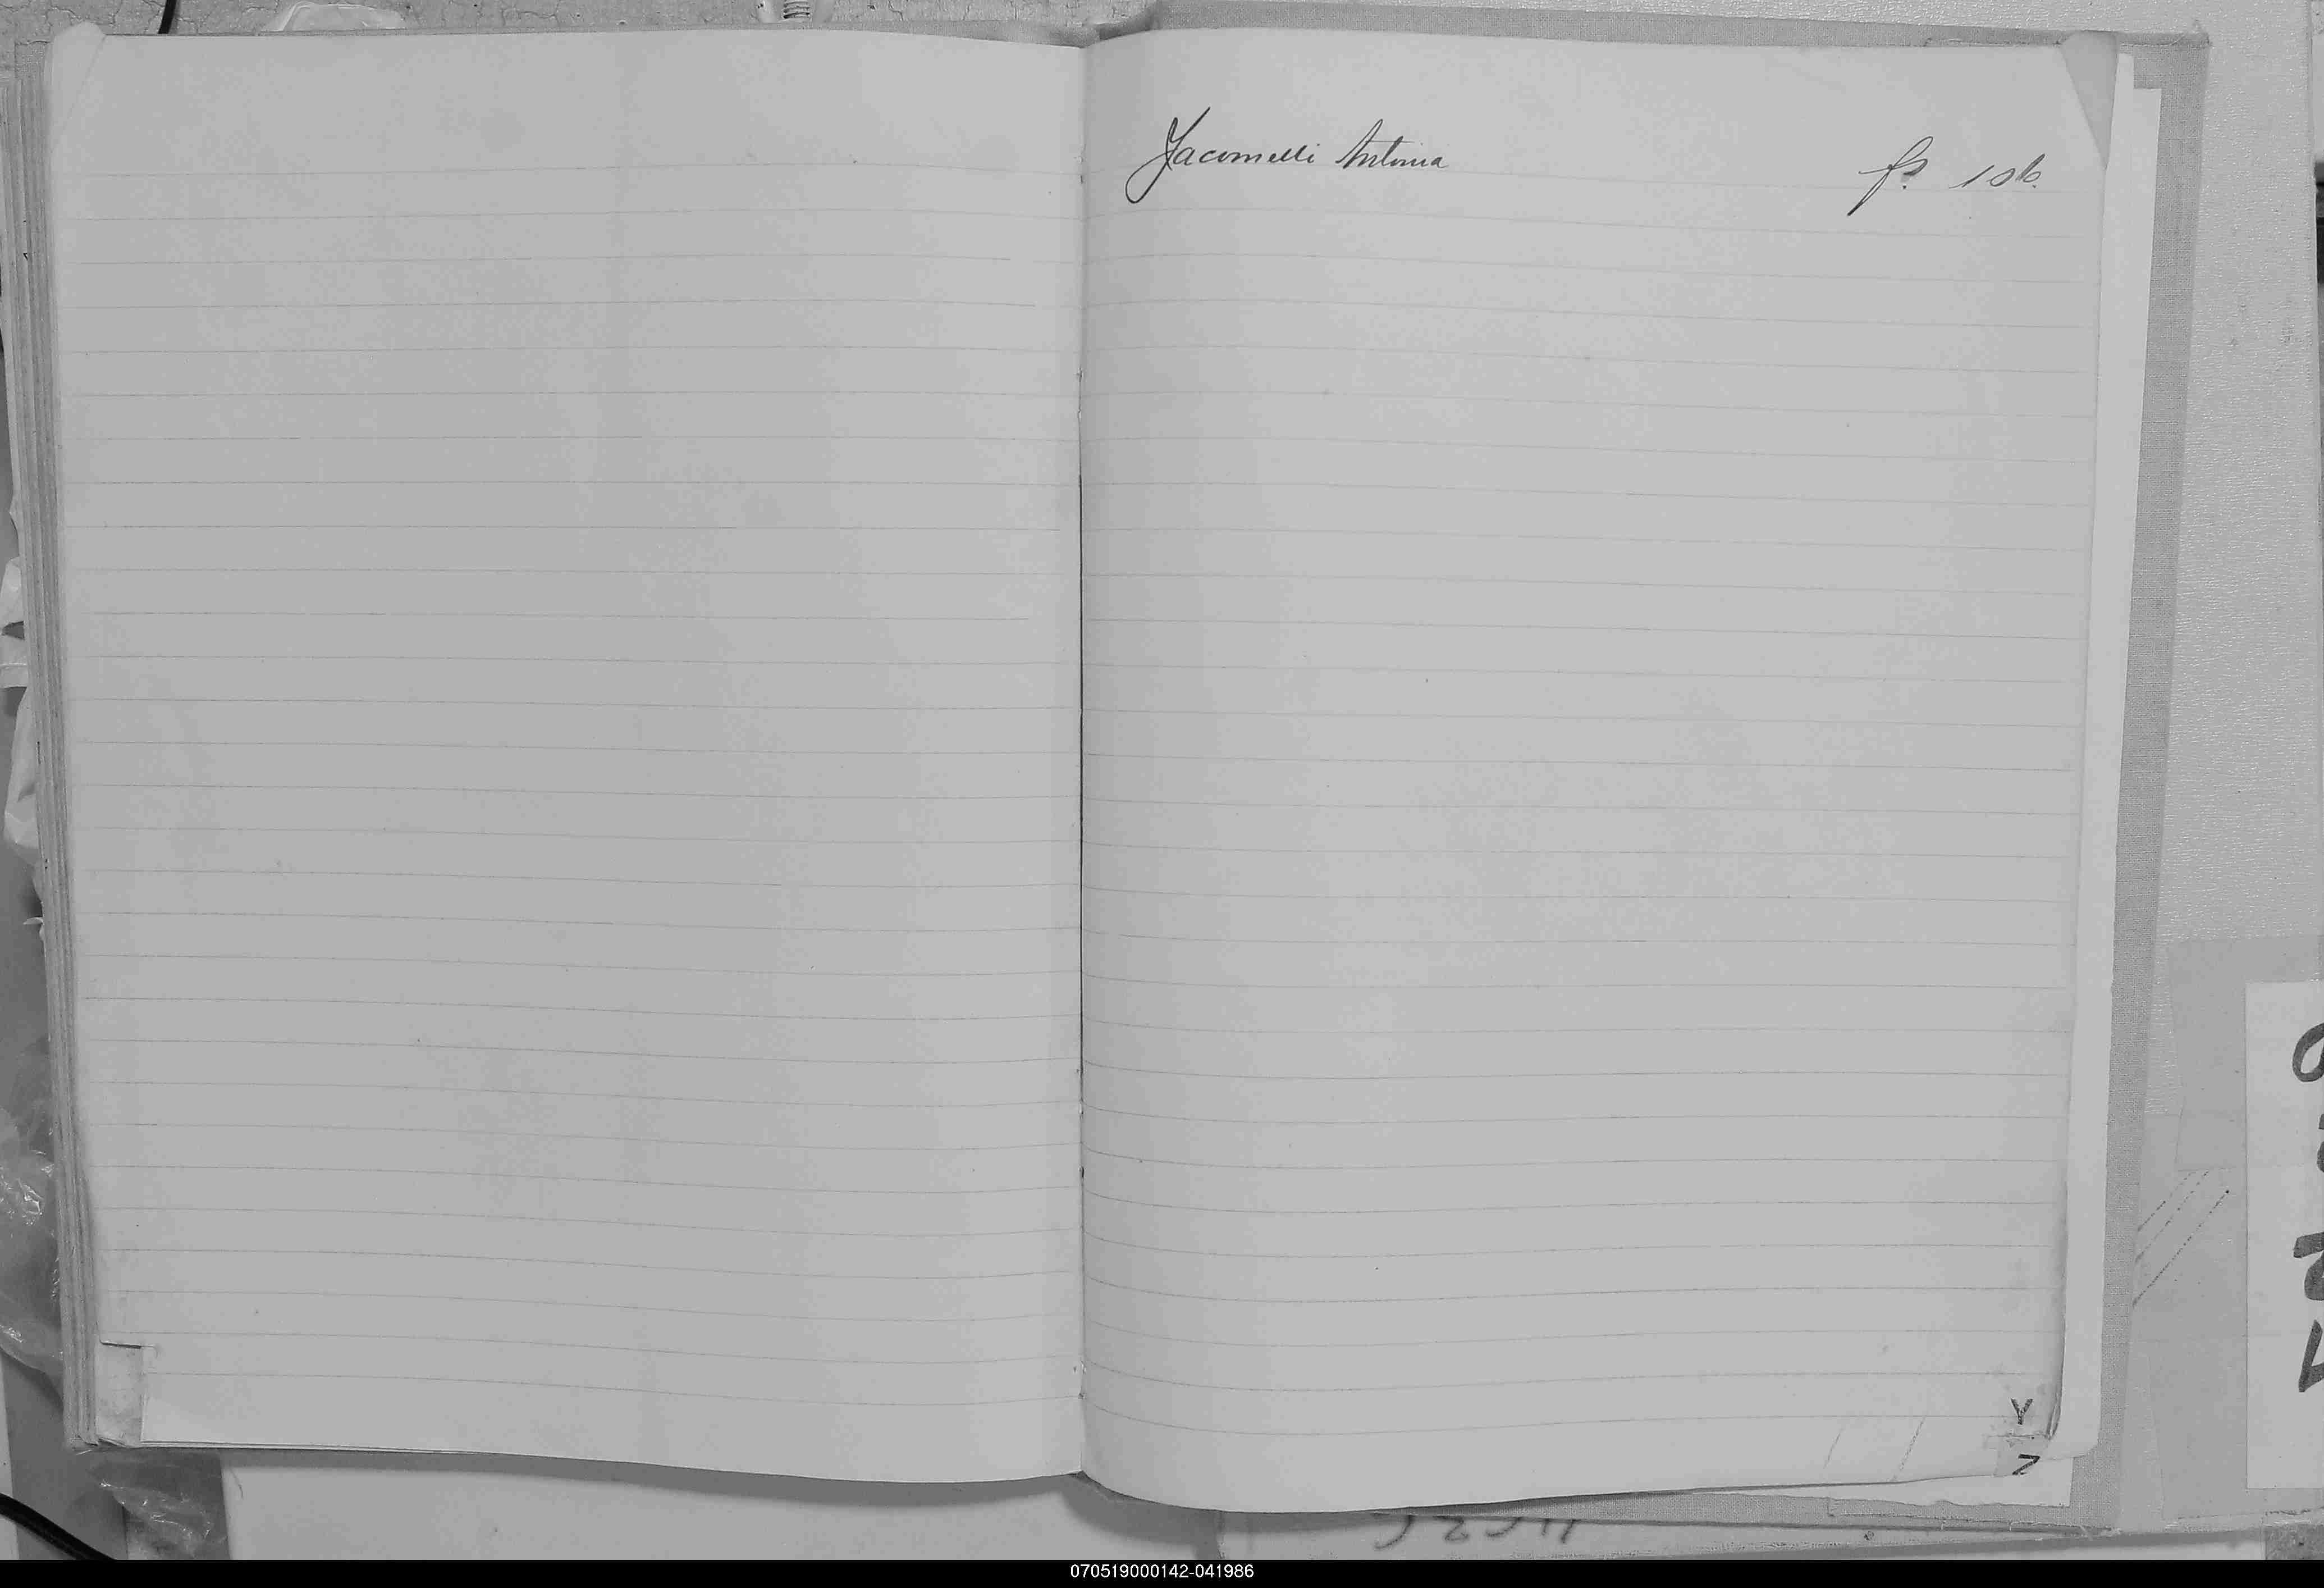 Yacomelli Antonia
fs. 106.
Y
Z
070519000142-041986